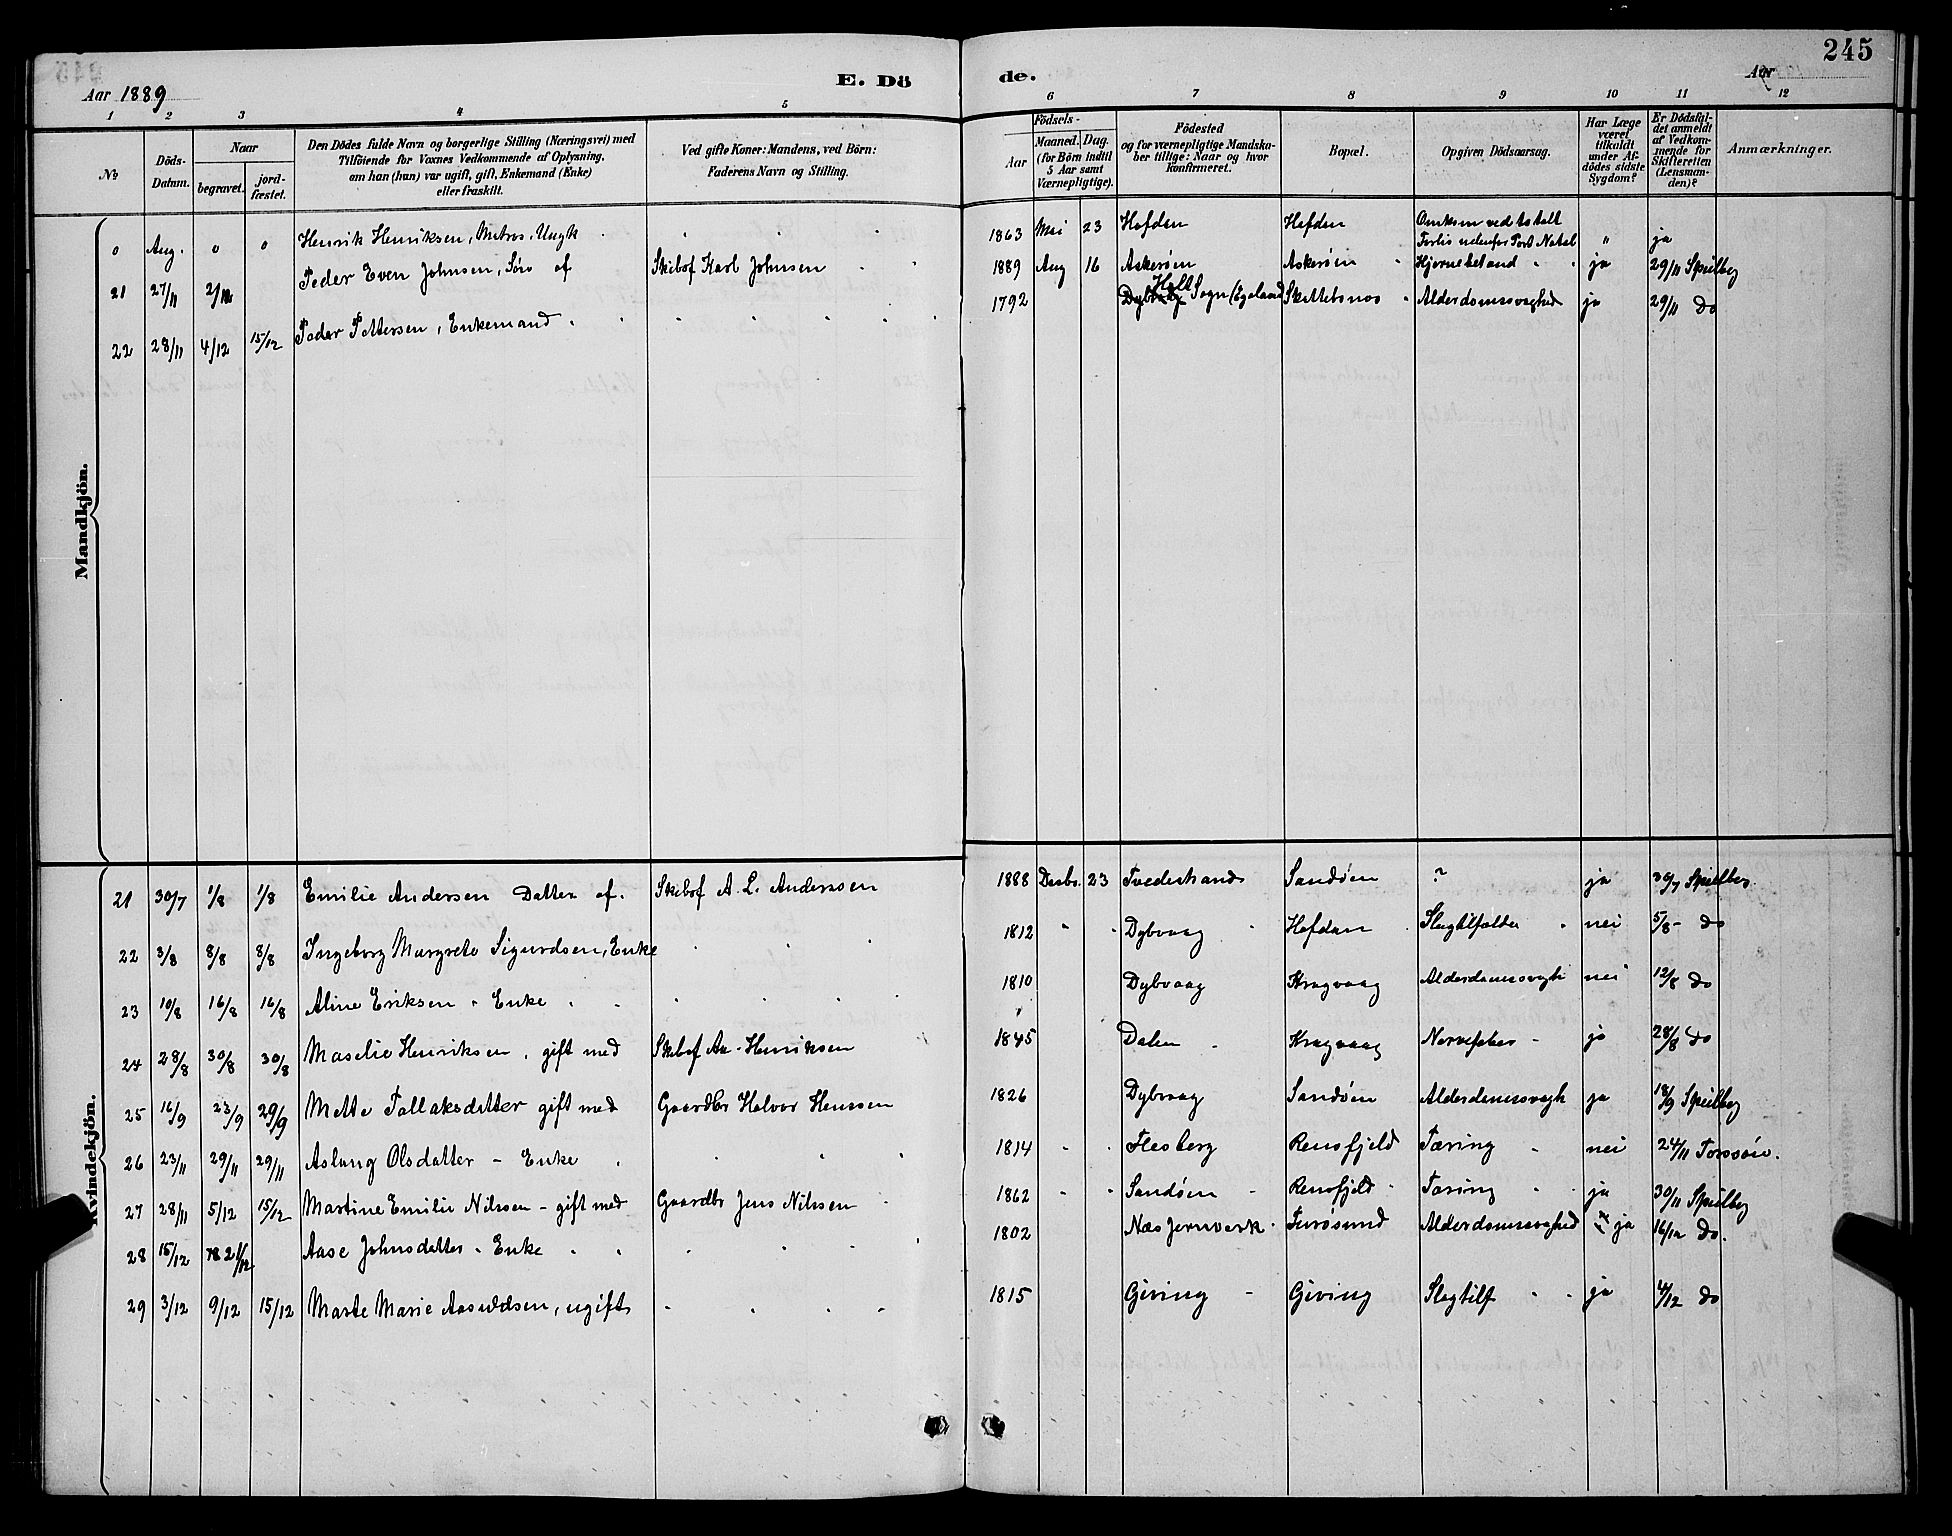 245
Aar 1889
E. Dö
de.
Aar
1 2 3 4 5 6 7 8 9 10 11 12
No
Döds-
Datum.
Naar
begravet.
jord-
fæstet.
Den Dödes fulde Navn og borgerlige Stilling (Næringsvei) med
Tilföiende for Voxnes Vedkommende af Oplysning,
om han (hun) var ugift, gift, Enkemand (Enke)
eller fraskilt.
Ved gifte Koner: Mandens, ved Börn:
Faderens Navn og Stilling.
Födsels-
Aar
Maaned. Dag.
(for Börn indtil
5 Aar samt
Værnepligtige).
Födested
og for værnepligtige Mandska-
ber tillige: Naar og hvor
konfirmeret.
Bopæl.
Opgiven Dödsaarsag.
Har Læge
været
tilkaldt
under Af-
dödes sidste
Sygdom?
Er Dödsfal-
det anmeldt
af Vedkom-
mende for
Skifteretten
(Lensman-
den)?
Anmærkninger.
Mandkjön.
0 Aug. 0 0 Henrik Henriksen, Matros, Ungk 1863 Mai 23 Hofden Hofden Omkom ved totalt Forlis udenfor Port Natal " ja
21 27/11 2/12 Peder Even Johnsen, Søn af Skibsf Karl Johnsen 1889 Aug 16 Askerøen Askerøen Hjernebetænd ja 29/11 Speilberg
22 28/11 4/12 15/12 Peder Pettersen, Enkemand 1792 Holt Sogn (Egeland Skattebonos Alderdomssvaghed ja 29/11 Do
Kvindekjön.
21 30/7 1/8 1/8 Emilie Andersen Datter af. Skibsf A. L. Andersen 1888 Decbr. 23 Tvedestrand Sandøen ? ja 30/7 Speilberg
22 3/8 8/8 8/8 Ingeborg Margrete Sigurdsen, Enke 1812 Dybvaag Hofdan Slagtilfælde nei 5/8 - Do
23 10/8 16/8 16/8 Aline Eriksen - Enke 1810 Dybvaag Kragvaag Alderdomssvagh nei 12/8 Do
24 28/8 30/8 30/8 Maselie Henriksen, gift med Skibsf Aa. Henriksen 1845 Dalen Kragvaag Nervefeber ja 28/8 Do
25 16/9 23/9 29/9 Mette Tallaksdatter gift med Gaardbr Halvor Henssen 1826 Dybvaag Sandøen Alderdomssvagh ja 18/9 Speilberg
26 23/11 29/11 29/11 Aslaug Olsdatter - Enke 1814 Flesberg Rensfjeld Tæring nei 24/11 Torssøn.
27 28/11 5/12 15/12 Martine Emilie Nilssen - gift med Gaardbr Jens Nilssen 1862 Sandøen Rensfjeld Tæring ja 30/11 Speilberg
28 15/12 21/12 Aase Johnsdatter - Enke 1802 Næs Jernverk Furøsund Alderdomssvaghed ja 16/12 Do.
29 3/12 9/12 15/12 Marte Marie Aasuldsen, ugift 1815 Giving Giving Slagtilf ja 4/12 Do